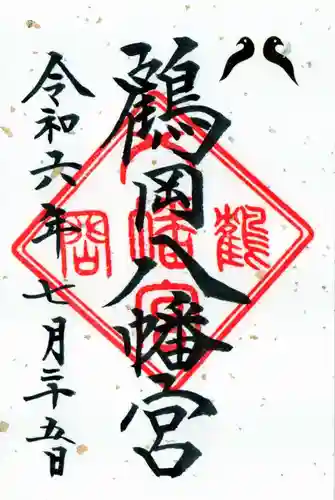 鶴岡八幡宮
令和六年七月二十五日
鶴岡八幡宮